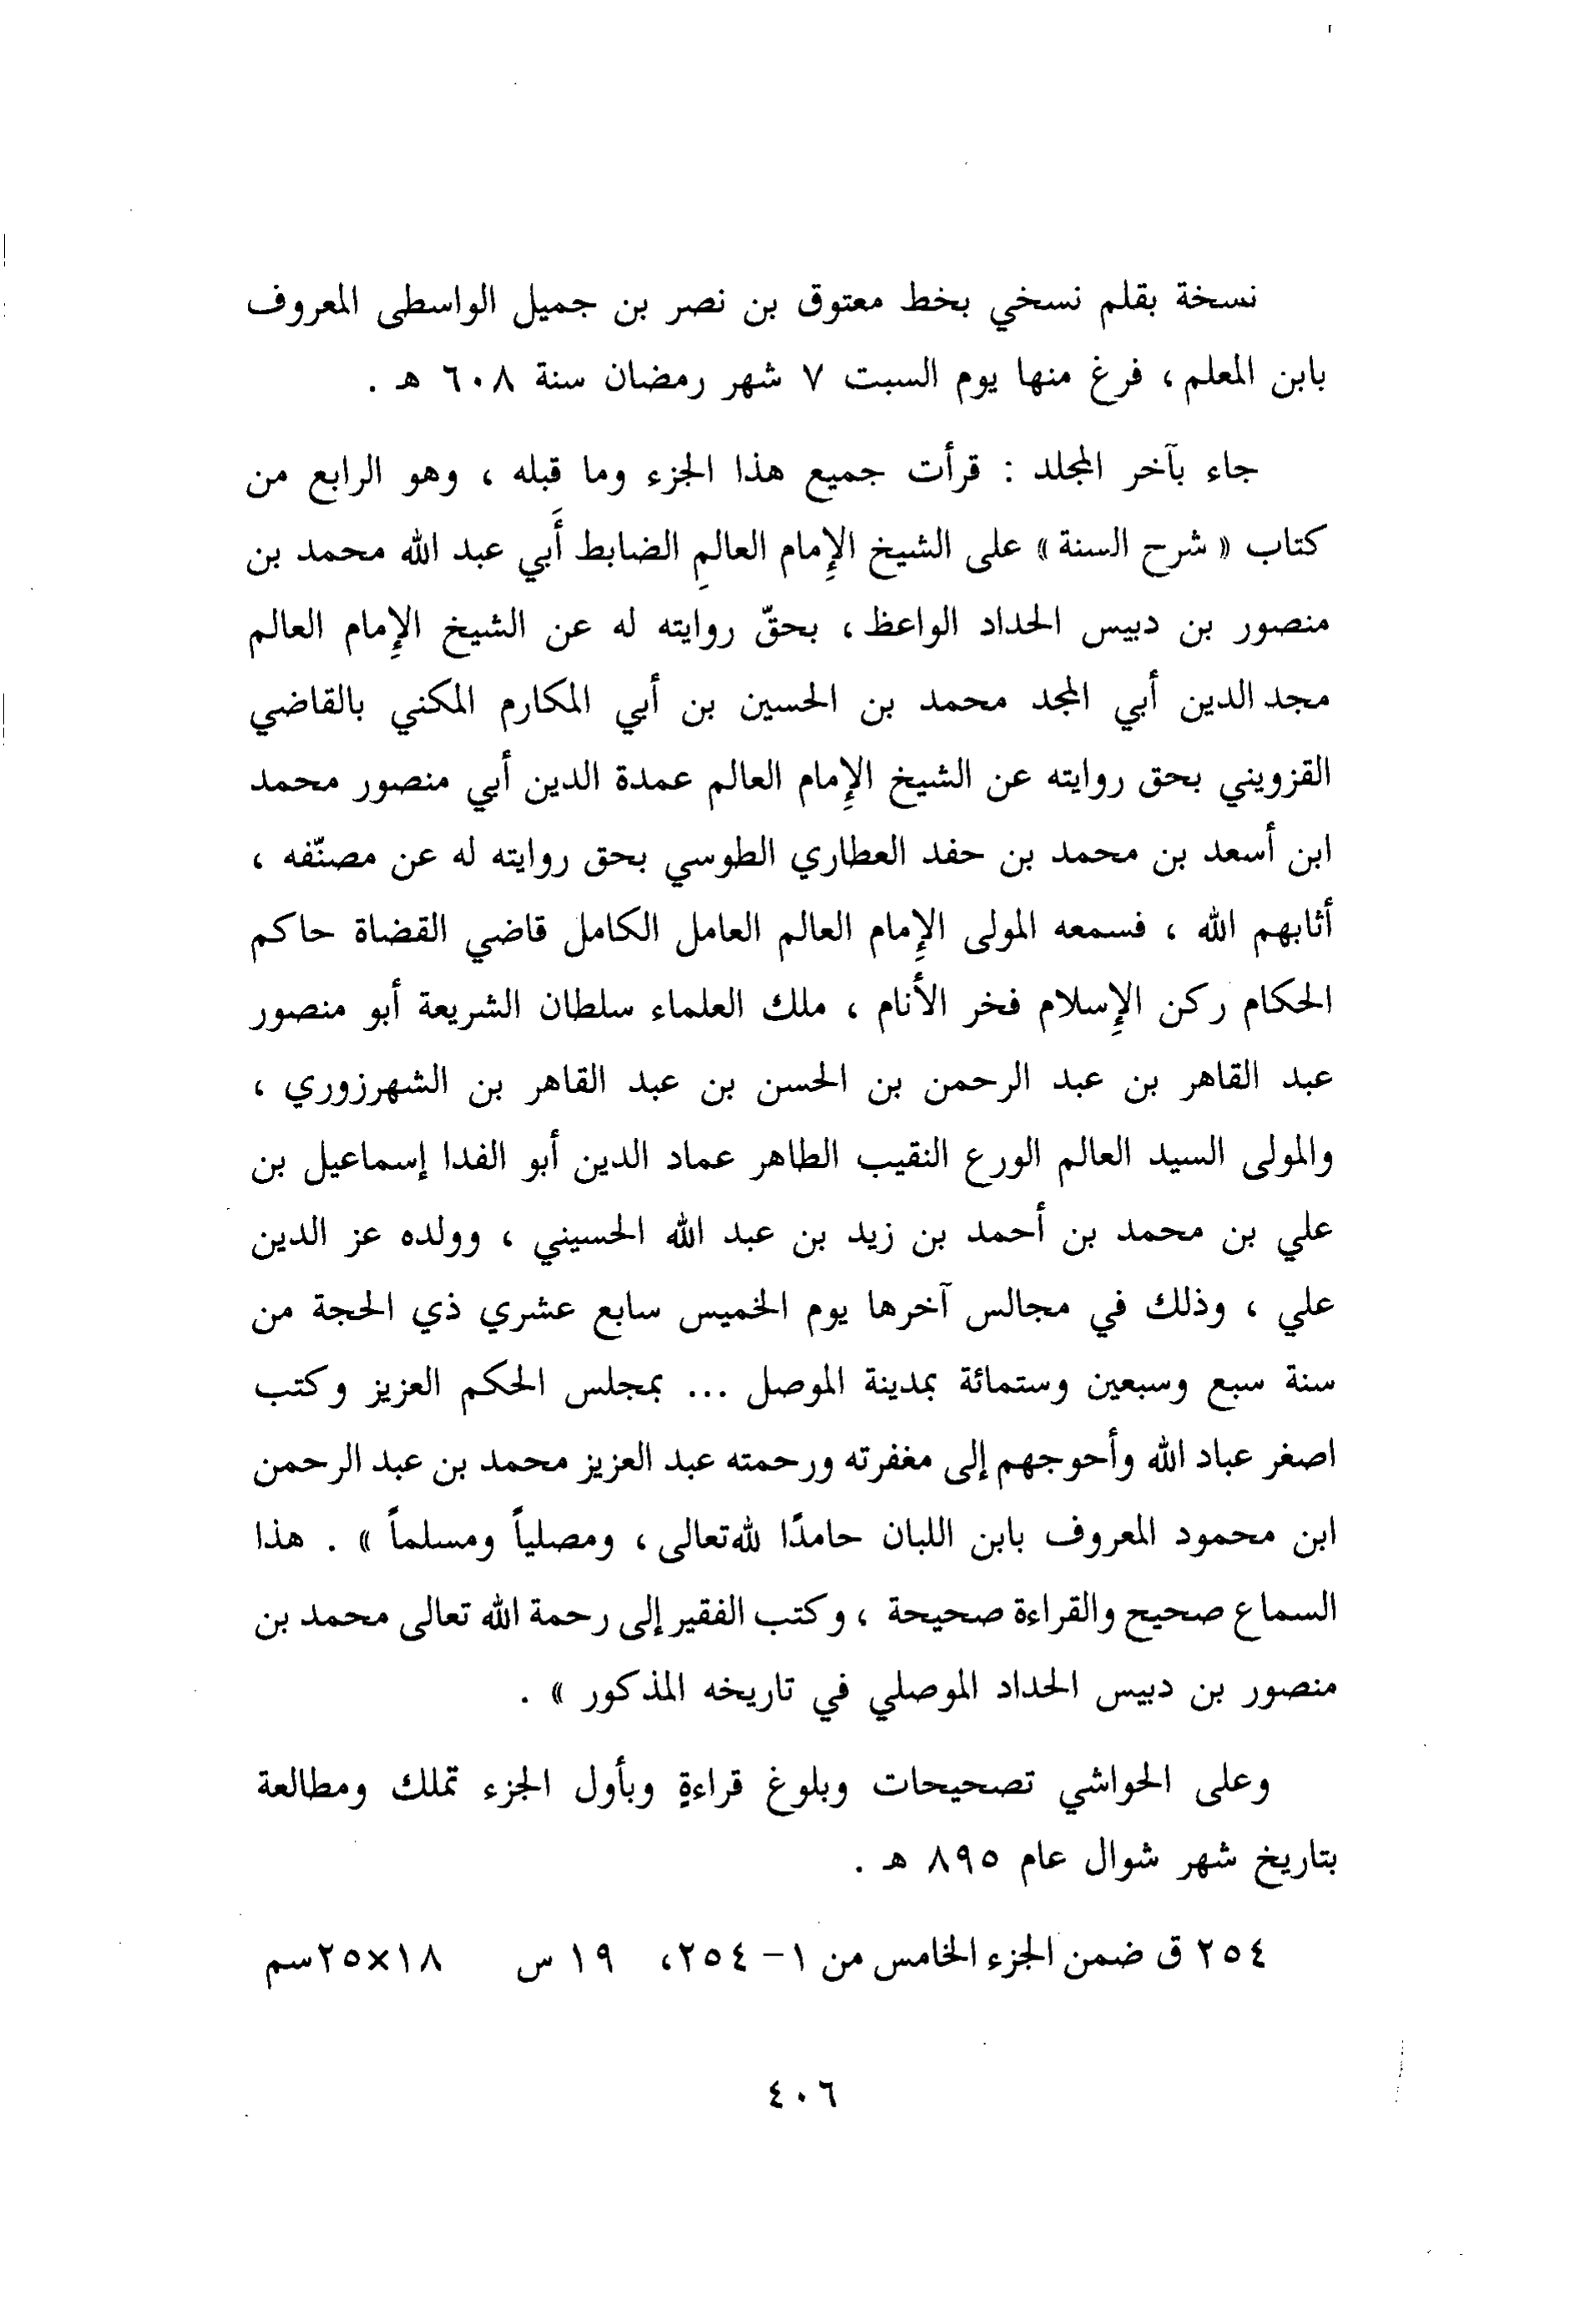 نسخة بقلم نسخي بخط معتوق بن نصر بن جميل الواسطى المعروف
بابن المعلم ، فرغ منها يوم السبت ٧ شهر رمضان سنة ٦٠٨ هـ .
جاء بآخر المجلد : قرأت جميع هذا الجزء وما قبله ، وهو الرابع من
كتاب « شرح السنة » على الشيخ الإِمام العالمِ الضابط أَبي عبد الله محمد بن
منصور بن دبيس الحداد الواعظ ، بحقّ روايته له عن الشيخ الإِمام العالم
مجد الدين أبي المجد محمد بن الحسين بن أبي المكارم المكني بالقاضي
القزويني بحق روايته عن الشيخ الإِمام العالم عمدة الدين أبي منصور محمد
ابن أسعد بن محمد بن حفد العطاري الطوسي بحق روايته له عن مصنّفه ،
أثابهم الله ، فسمعه المولى الإِمام العالم العامل الكامل قاضي القضاة حاكم
الحكام ركن الإِسلام فخر الأنام ، ملك العلماء سلطان الشريعة أبو منصور
عبد القاهر بن عبد الرحمن بن الحسن بن عبد القاهر بن الشهرزوري ،
والمولى السيد العالم الورع النقيب الطاهر عماد الدين أبو الفدا إسماعيل بن
علي بن محمد بن أحمد بن زيد بن عبد الله الحسيني ، وولده عز الدين
علي ، وذلك في مجالس آخرها يوم الخميس سابع عشري ذي الحجة من
سنة سبع وسبعين وستمائة بمدينة الموصل ... بمجلس الحكم العزيز وكتب
اصغر عباد الله وأحوجهم إلى مغفرته ورحمته عبد العزيز محمد بن عبد الرحمن
ابن محمود المعروف بابن اللبان حامدًا لله تعالى ، ومصلياً ومسلماً » . هذا
السماع صحيح والقراءة صحيحة ، وكتب الفقير إلى رحمة الله تعالى محمد بن
منصور بن دبيس الحداد الموصلي في تاريخه المذكور » .
وعلى الحواشي تصحيحات وبلوغ قراءةٍ وبأول الجزء تملك ومطالعة
بتاريخ شهر شوال عام ٨٩٥ هـ .
٢٥٤ ق ضمن الجزء الخامس من ١ - ٢٥٤، ١٩ س ١٨×٢٥سم
٤٠٦